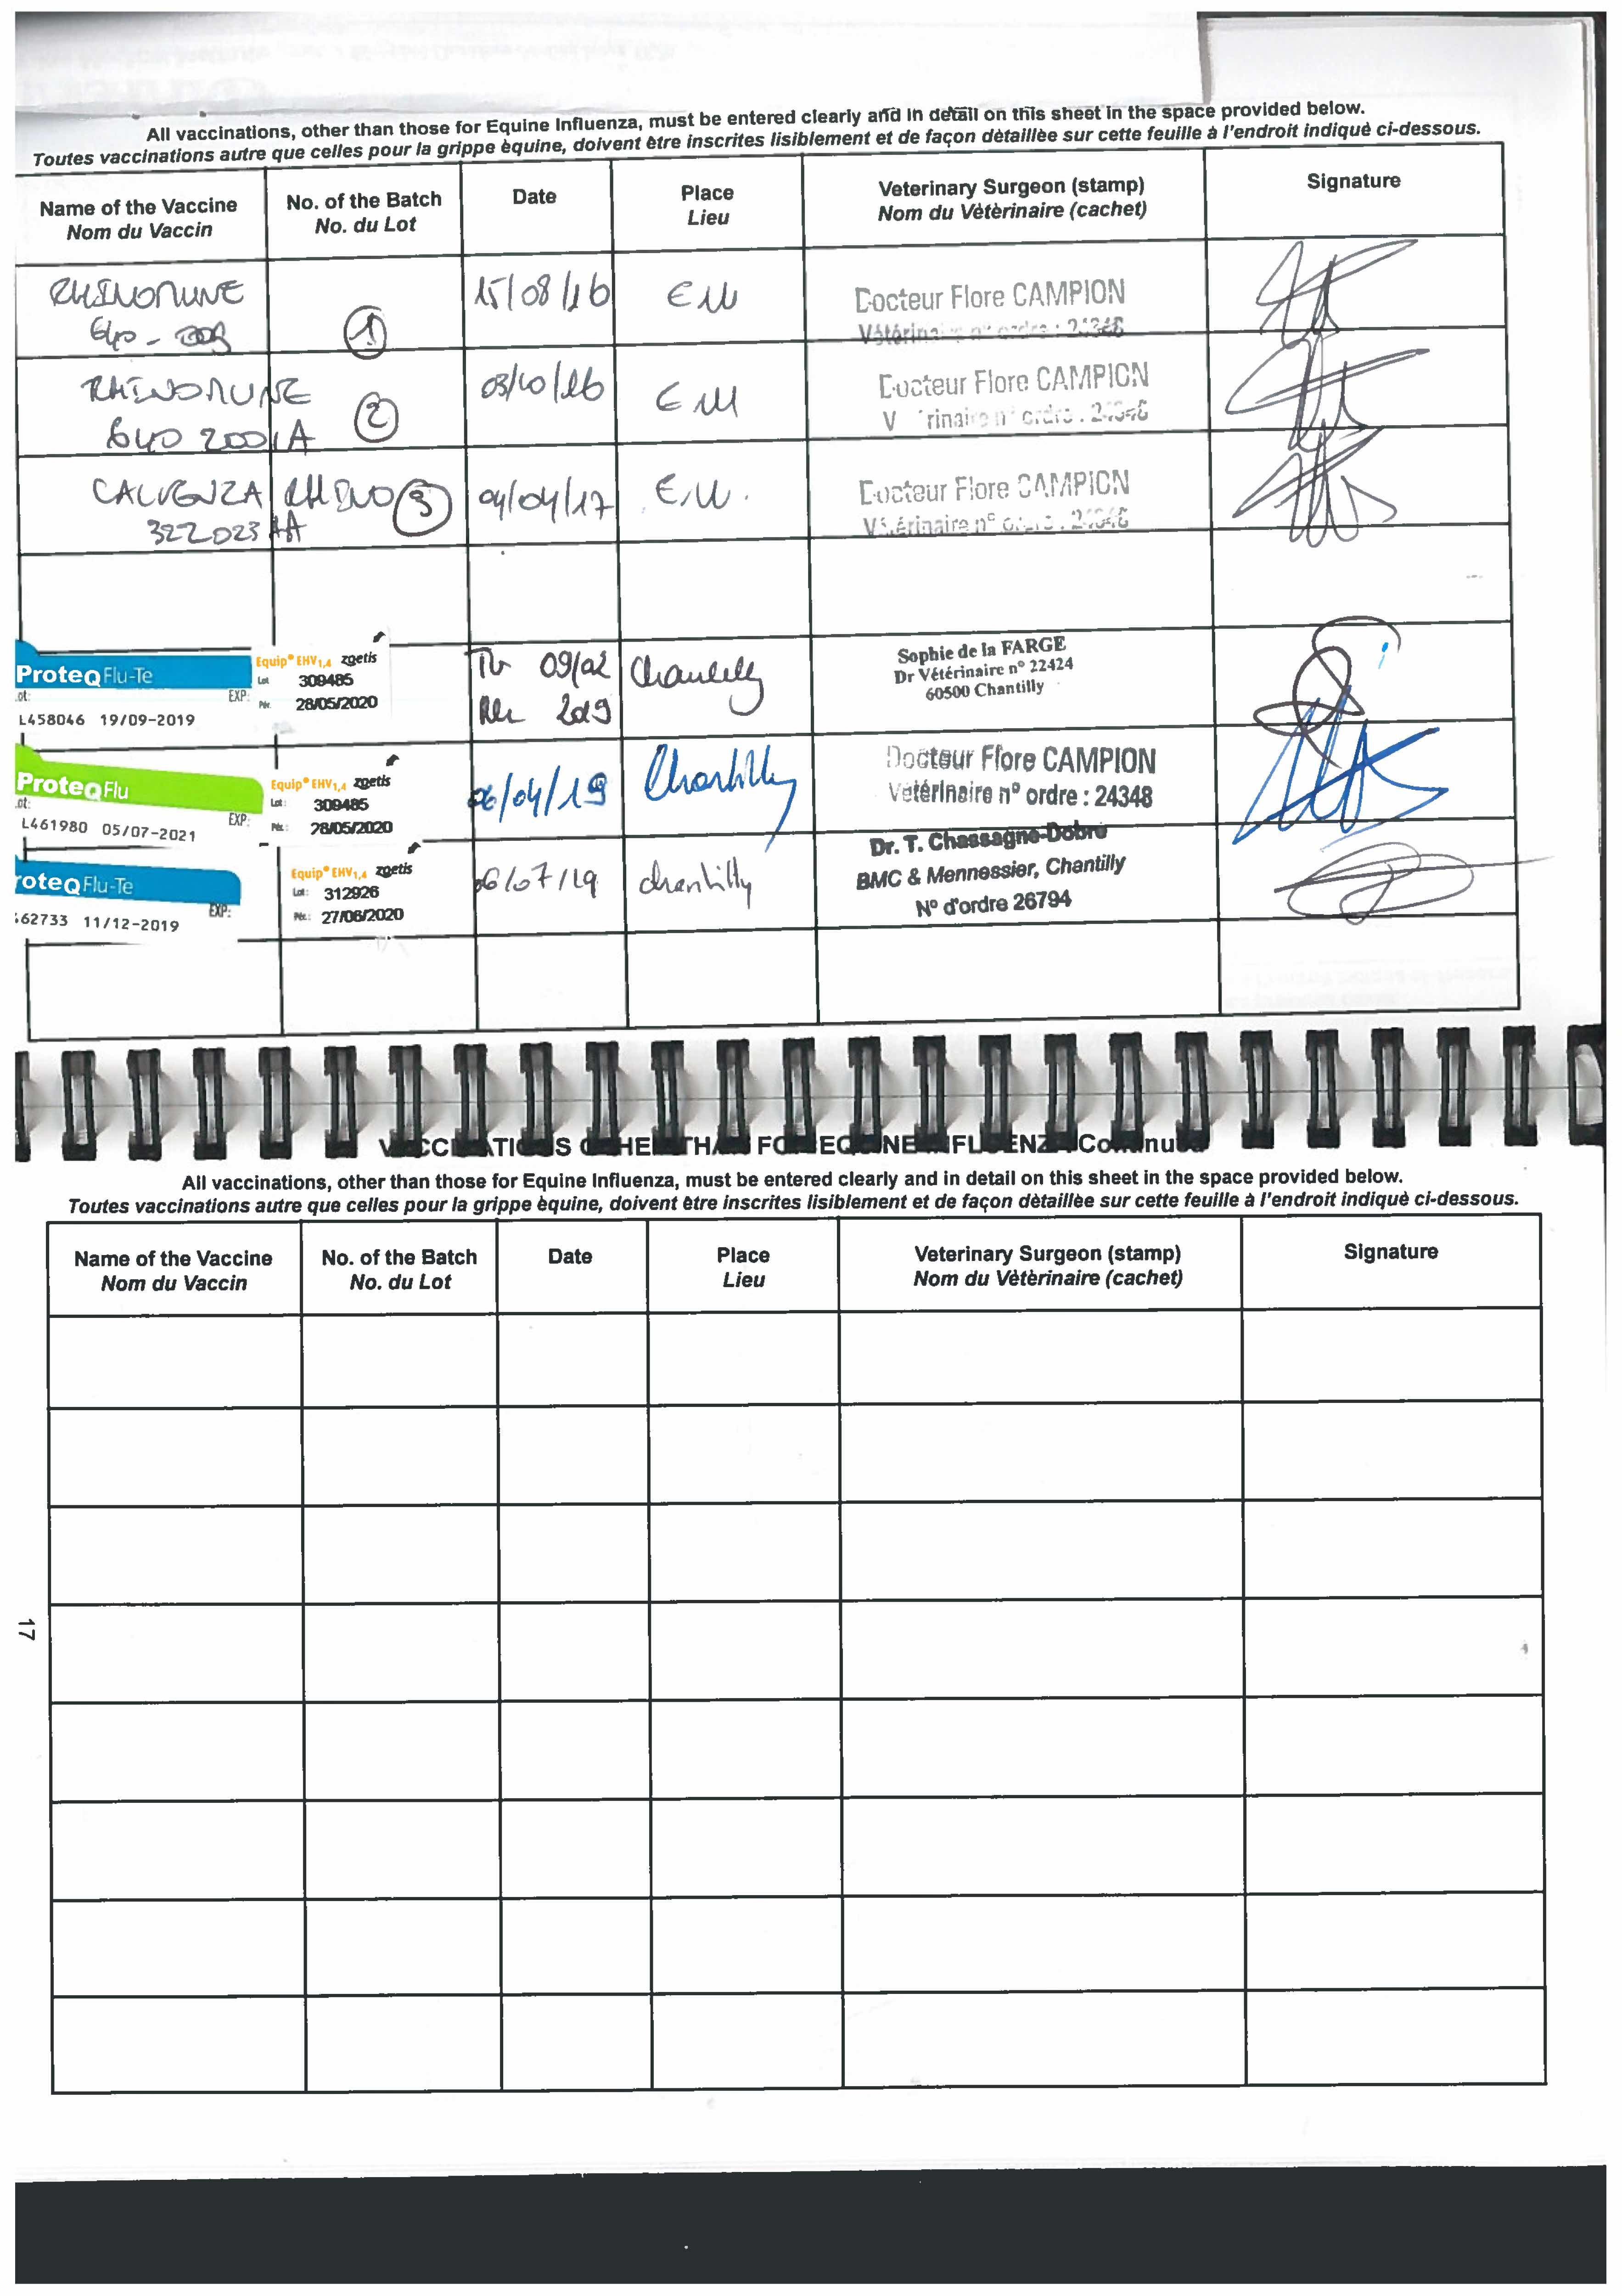 All vaccinations, other than those for Equine Influenza, must be entered clearly and in detail on this sheet in the space provided below.
Toutes vaccinations autre que celles pour la grippe èquine, doivent être inscrites lisiblement et de façon dètaillèe sur cette feuille à l'endroit indiquè ci-dessous.
Name of the Vaccine No. of the Batch Date Place Veterinary Surgeon (stamp) Signature
Nom du Vaccin No. du Lot Lieu Nom du Vètèrinaire (cachet)
RHINOMUNE 15/08/16 EM Docteur Flore CAMPION
1 Vétérinaire n° ordre : 24348
RHINOMUNE 2 03/10/16 EM Docteur Flore CAMPION
640 2001A n° ordre : 24348
CALVENZA RHINO 3 04/04/17 E.M. Docteur Flore CAMPION
322023AA Vétérinaire n° ordre : 24348
ProteqFlu-Te Equip® EHV1,4 zoetis 09/02 Chantilly Sophie de la FARGE
Lot 309485 Dr Vétérinaire n° 22424
EXP: Pér. 28/05/2020 2019 60500 Chantilly
L458046 19/09-2019
ProteqFlu Equip® EHV1,4 zoetis 06/04/19 Chantilly Docteur Flore CAMPION
Lot: 309485 Vétérinaire n° ordre : 24348
EXP: Pér.: 28/05/2020
L461980 05/07-2021
roteqFlu-Te Equip® EHV1,4 zoetis 06/07/19 chantilly Dr. T. Chassagne-Dobre
Lot: 312926 BMC & Mennessier, Chantilly
EXP: Pér.: 27/06/2020 N° d'ordre 26794
62733 11/12-2019
All vaccinations, other than those for Equine Influenza, must be entered clearly and in detail on this sheet in the space provided below.
Toutes vaccinations autre que celles pour la grippe èquine, doivent être inscrites lisiblement et de façon dètaillèe sur cette feuille à l'endroit indiquè ci-dessous.
Name of the Vaccine No. of the Batch Date Place Veterinary Surgeon (stamp) Signature
Nom du Vaccin No. du Lot Lieu Nom du Vètèrinaire (cachet)
17